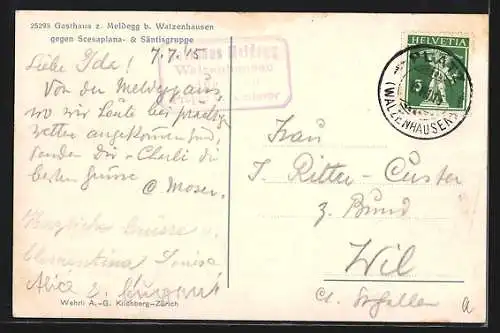 25295 Gasthaus z. Meldegg b. Walzenhausen
gegen Scesaplana- & Säntisgruppe
7.7.15
Gasthaus Meldegg
Walzenhausen
Liebe Ida!
Von der Meldegg aus,
wo wir heute bei prächtig
Wetter angekommen sind,
senden Dir & Charli die
besten Grüsse
C. Moser.
Herzliche Grüsse
Clementina Louisa
Alice
Wehrli A.-G. Kilchberg-Zürich
HELVETIA
5
PLATZ
(WALZENHAUSEN)
Frau
T. Ritter-Custer
z. Bund
Wil
Ct. St. Gallen